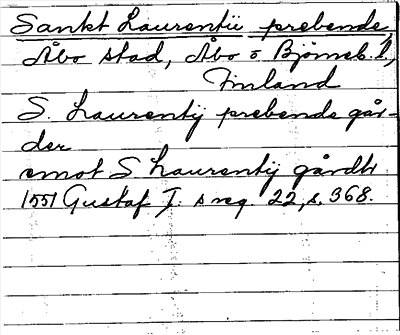 Sankt Laurentii prebende,
Åbo stad, Åbo o Björneb. l.,
Finland
S. Laurentij prebende går-
der
emot S Laurentij gårdh
1551 Gustaf I. s reg. 22, s. 368.